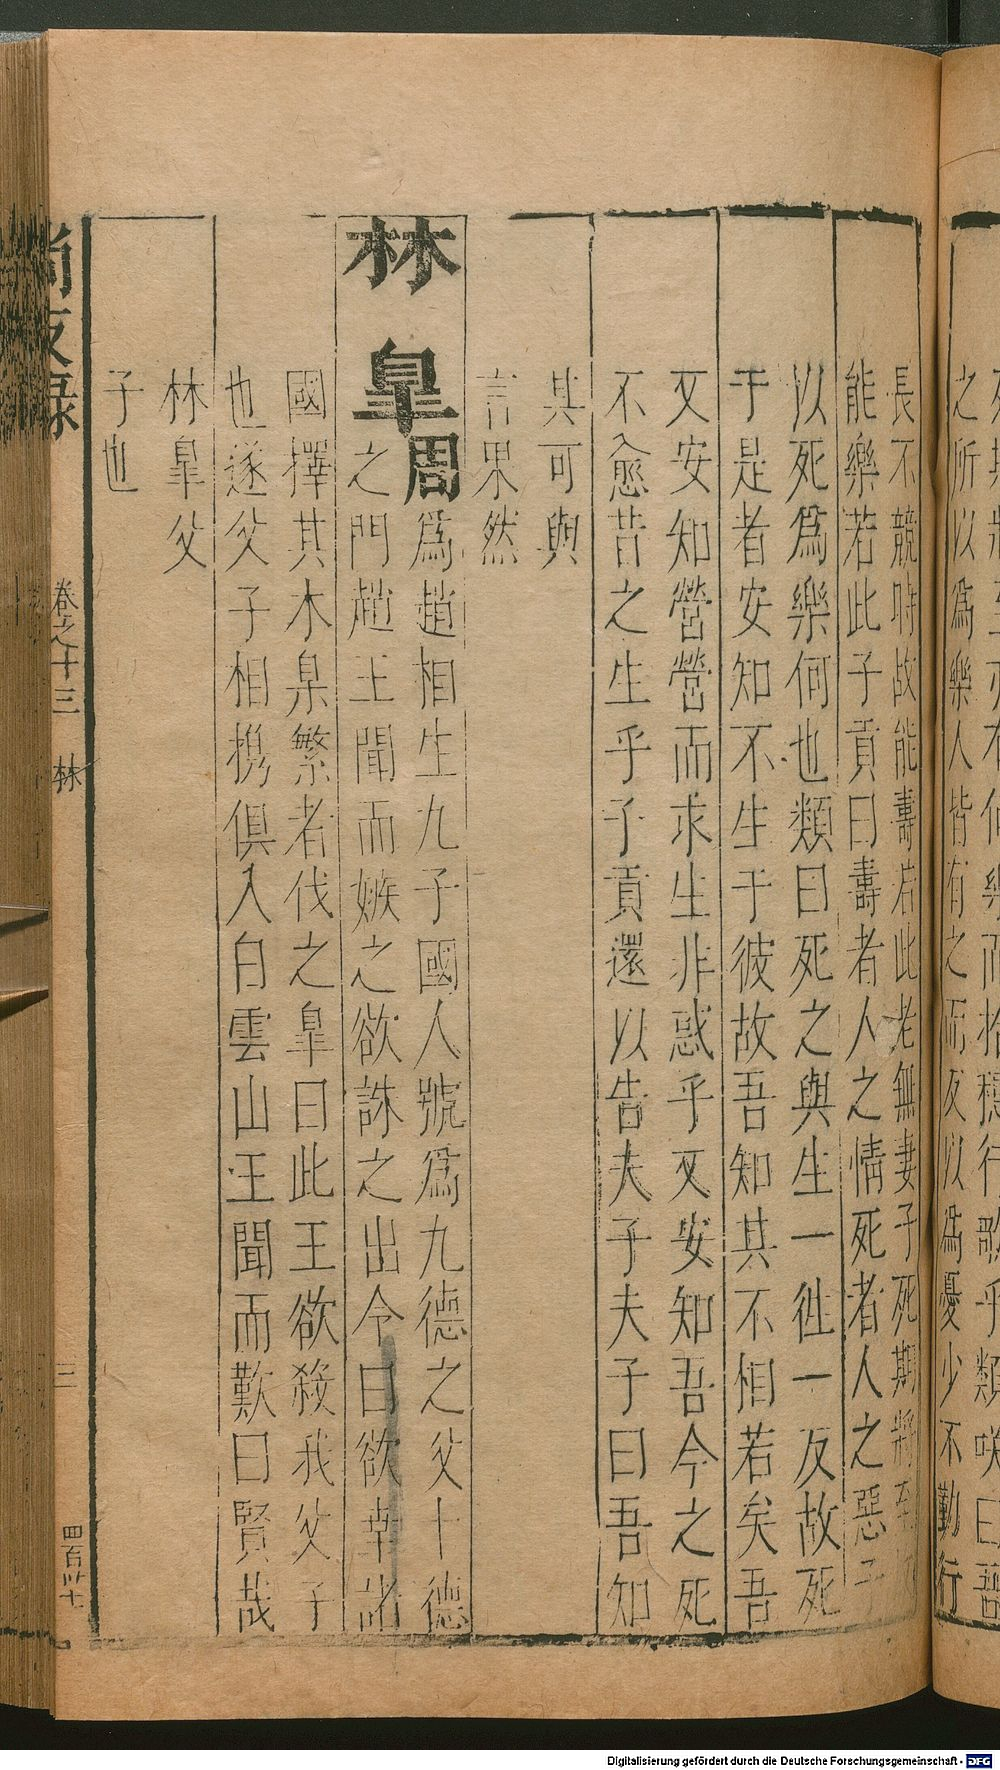 其將至亦有何樂而拾穗行歌乎類咲曰吾
之所以爲樂人皆有之而反以爲憂少不勤行
長不競時故能壽若此老無妻子死期將至
能樂若此子貢曰壽者人之情死者人之惡子
以死爲樂何也類曰死之與生一徃一反故死
于是者安知不生于彼故吾知其不相若矣吾
又安知營營而求生非惑乎又安知吾今之死
不愈昔之生乎子貢還以告夫子夫子曰吾知
其可與
言果然
林皐周爲趙相生九子國人號爲九德之父十德
之門趙王聞而嫉之欲誅之出令曰欲幸諸
國擇其木杲繁者伐之皐曰此王欲殺我父子
也遂父子相携俱入白雲山王聞而歎曰賢哉
林皐父
子也
尚友录 卷之十三 林 三
Digitalisierung gefördert durch die Deutsche Forschungsgemeinschaft - DFG